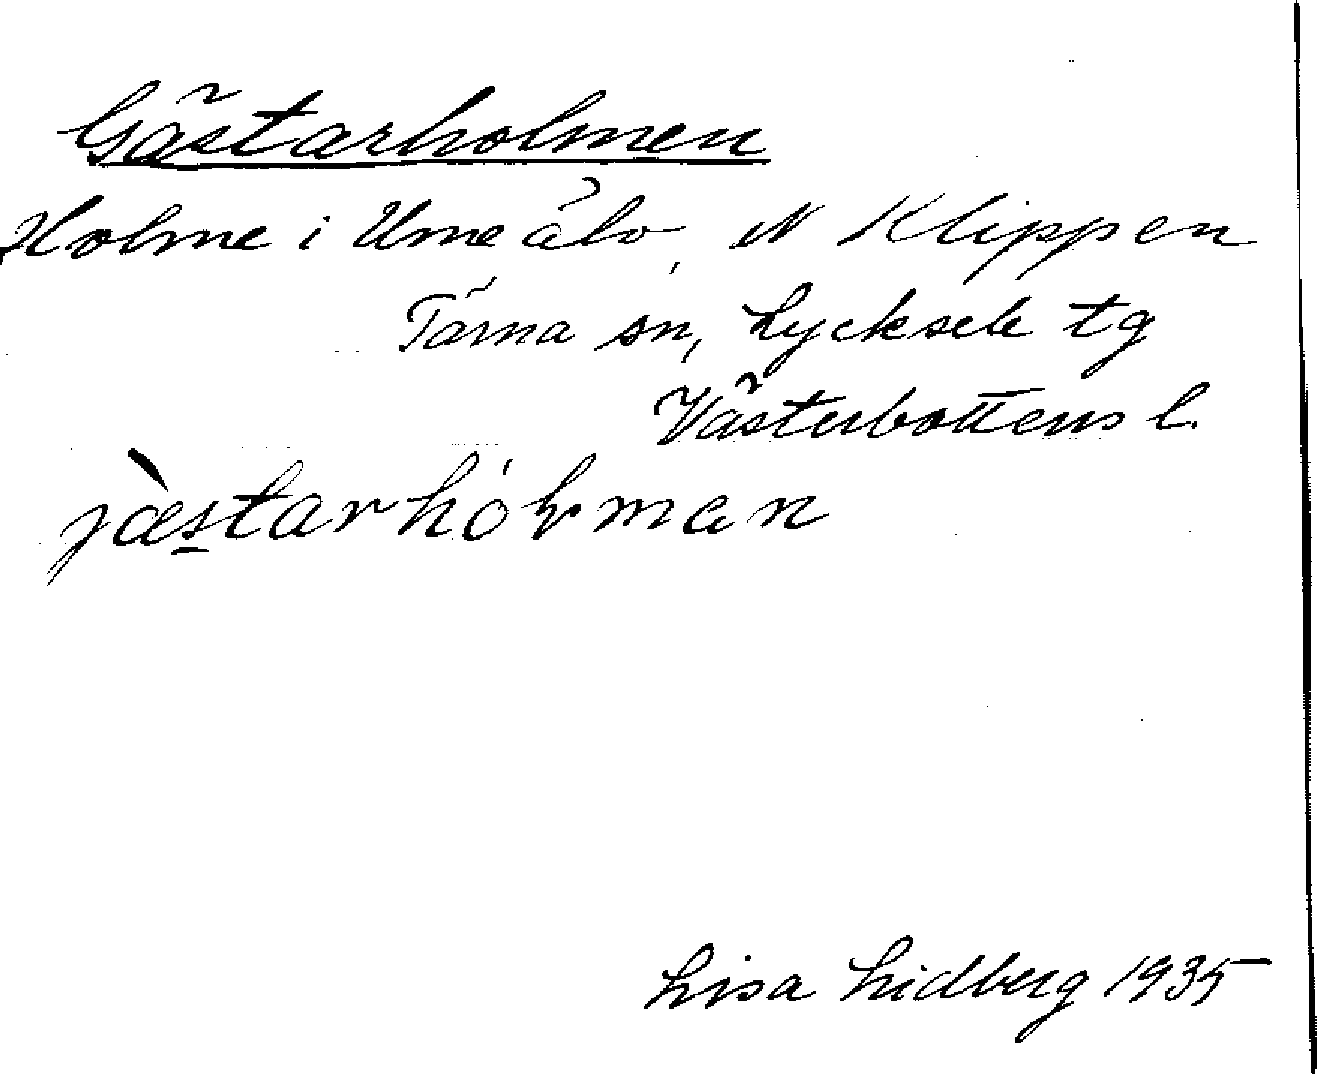 Gästarholmen
Holme i Ume älv, N Klippen
Tärna sn, Lycksele tg
Västerbottens l.
Lisa Lidberg 1935